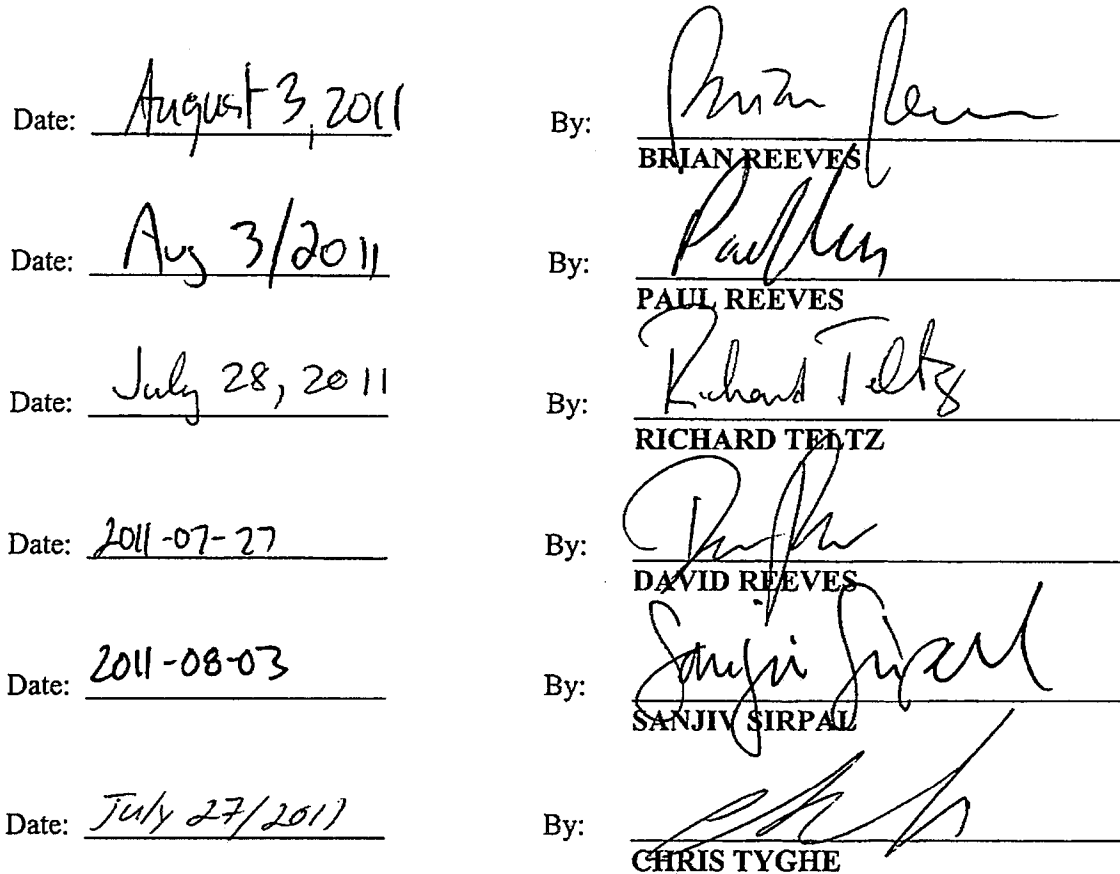 Date: August 3, 2011 By: Brian Reeves
BRIAN REEVES
Date: Aug 3/2011 By: Paul Reeves
PAUL REEVES
Date: July 28, 2011 By: Richard Teltz
RICHARD TELTZ
Date: 2011-07-27 By:
DAVID REEVES
Date: 2011-08-03 By: Sanjiv Sirpal
SANJIV SIRPAL
Date: July 27/2011 By:
CHRIS TYGHE